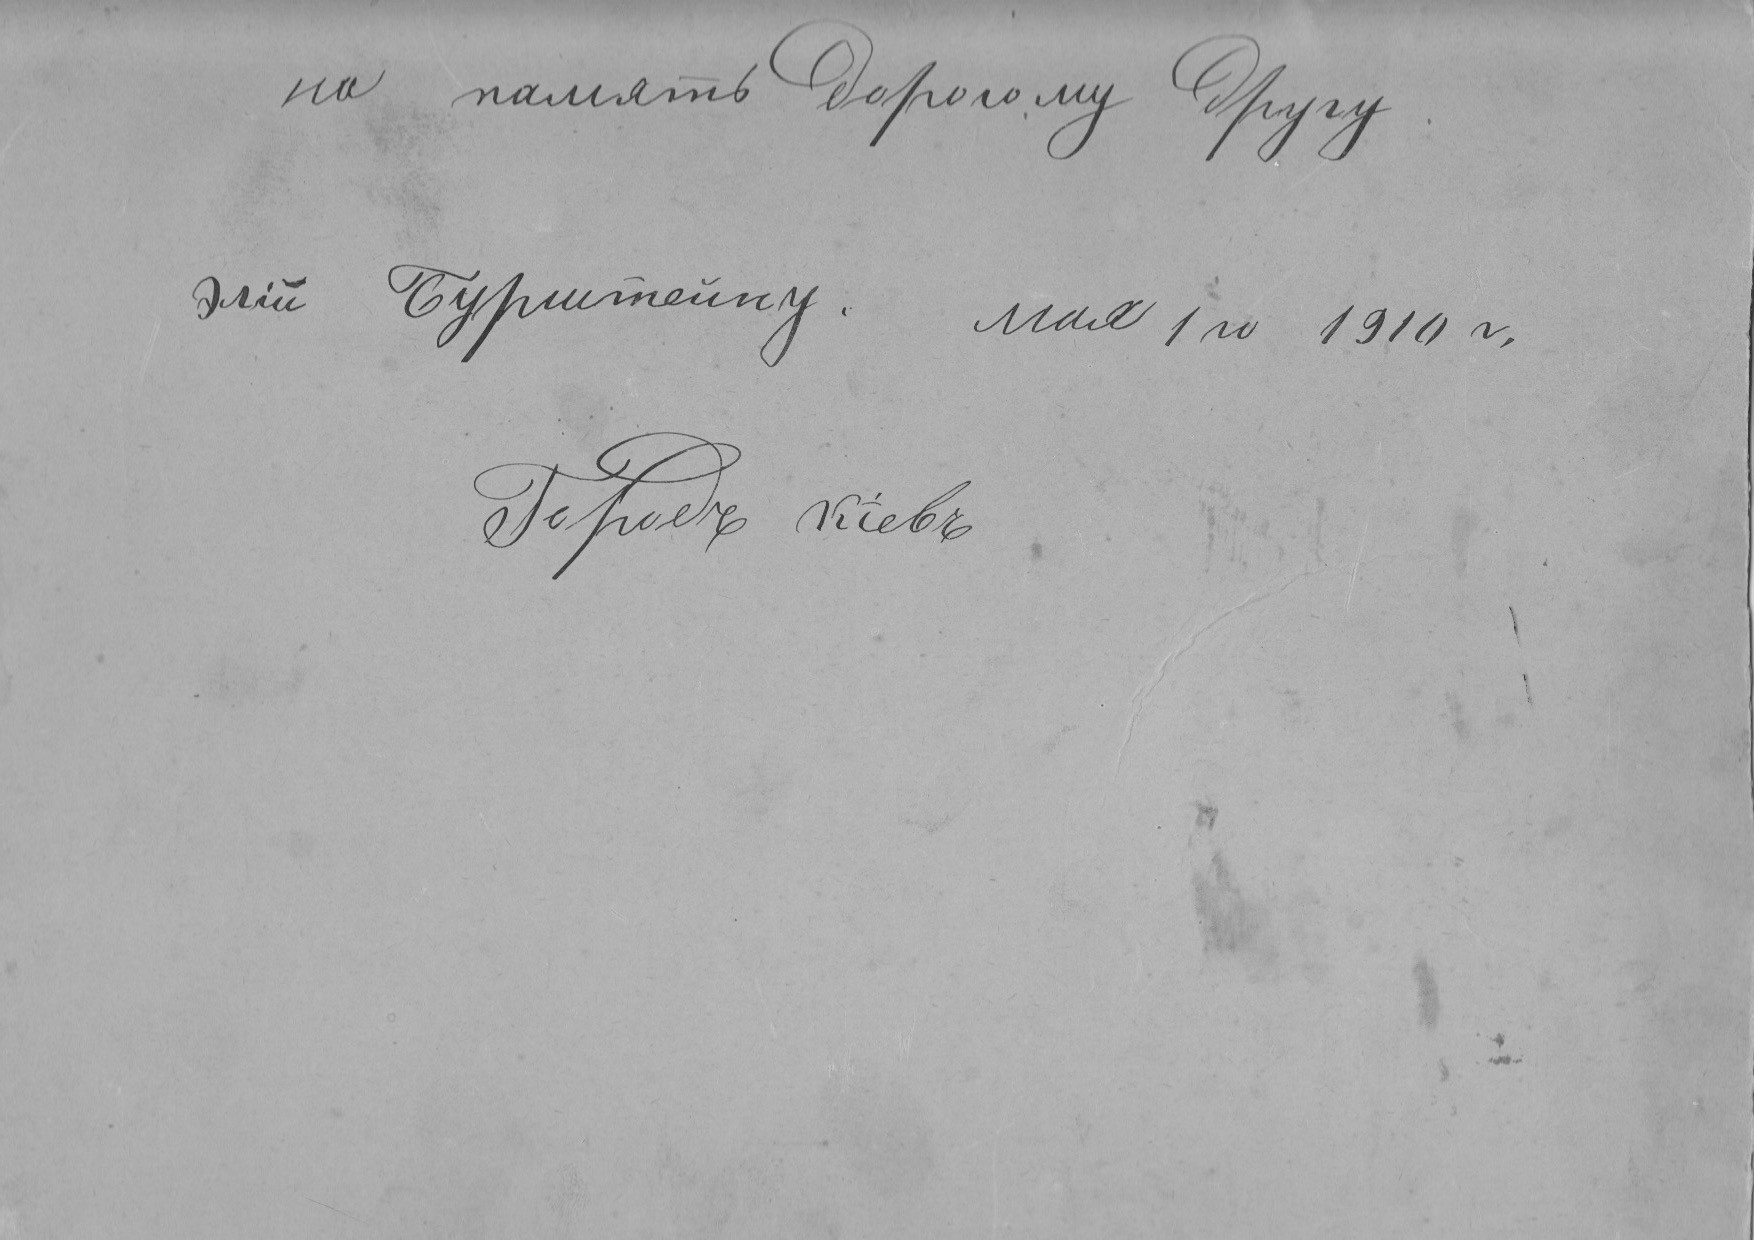 на память Дорогому Другу.
Элій Бурштейну. мая 1 го 1910 г.
Городъ Кіевъ